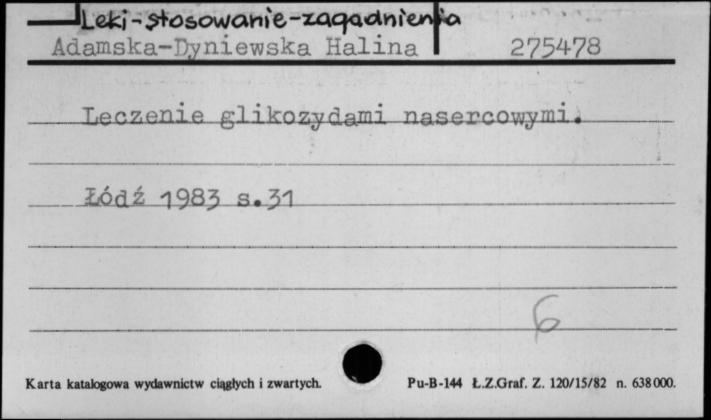 Leki-stosowanie-zagadnienia
Adamska-Dyniewska Halina 275478
Leczenie glikozydami nasercowymi.
Łódź 1983 s.31
6
Karta katalogowa wydawnictw ciągłych i zwartych. Pu-B-144 Ł.Z.Graf. Z. 120/15/82 n. 638000.